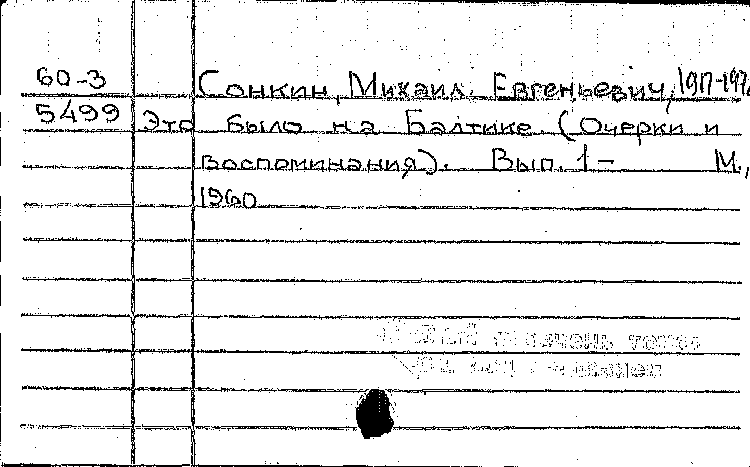 60-3 Сонкин, Михаил Евгеньевич,
5499 Это было на Балтике. (Очерки и
воспоминания). Вып. 1- М.,
1960